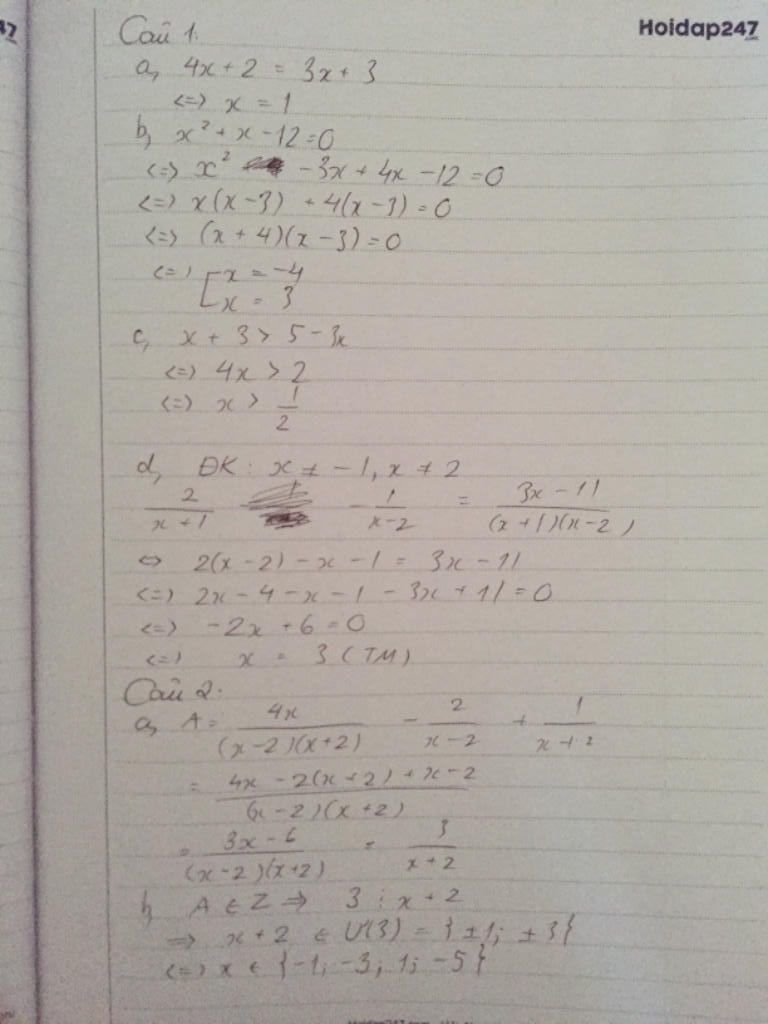 47
Hoidap247
Câu 1:
a, 4x + 2 = 3x + 3
<=> x = 1
b, x² + x - 12 = 0
<=> x² - 3x + 4x - 12 = 0
<=> x(x - 3) + 4(x - 3) = 0
<=> (x + 4)(x - 3) = 0
<=> [x = -4
x = 3
c, x + 3 > 5 - 3x
<=> 4x > 2
<=> x > 1/2
d, ĐK: x ≠ -1, x ≠ 2
2/(x+1) - 1/(x-2) = (3x - 11)/((x+1)(x-2))
<=> 2(x - 2) - x - 1 = 3x - 11
<=> 2x - 4 - x - 1 - 3x + 11 = 0
<=> -2x + 6 = 0
<=> x = 3 (TM)
Câu 2:
a, A = 4x/((x-2)(x+2)) - 2/(x-2) + 1/(x+2)
= (4x - 2(x+2) + x - 2)/((x-2)(x+2))
= (3x - 6)/((x-2)(x+2)) = 3/(x+2)
b, A ∈ Z => 3 ⋮ x + 2
=> x + 2 ∈ Ư(3) = {±1; ±3}
<=> x ∈ {-1; -3; 1; -5}